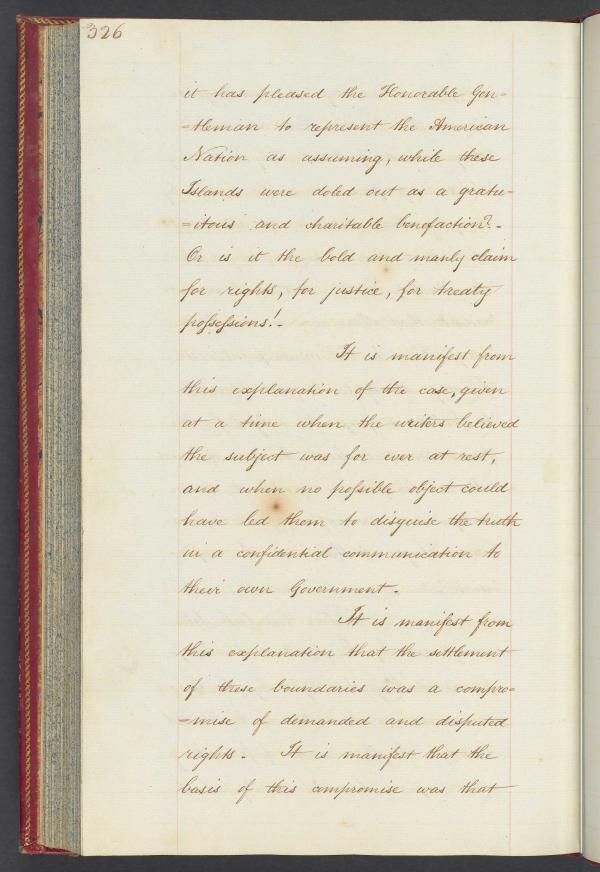 326
it has pleased the Honorable Gen=
=tleman to represent the American
Nation as assuming, while these
Islands were doled out as a gratu=
=itous and charitable benefaction?-
Or is it the bold and manly claim
for rights, for justice, for treaty
poſseſsions!-
It is manifest from
this explanation of the case, given
at a time when the writers believed
the subject was for ever at rest,
and when no poſsible object could
have led them to disguise the truth
in a confidential communication to
their own Government.
It is manifest from
this explanation that the settlement
of these boundaries was a compro=
=mise of demanded and disputed
rights. It is manifest that the
basis of this compromise was that